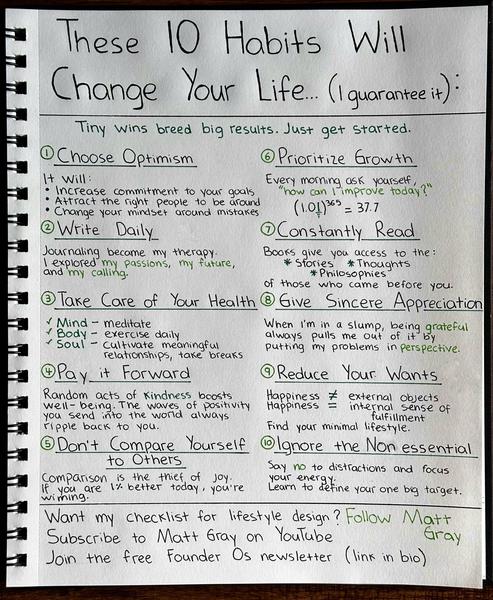 These 10 Habits Will
Change Your Life... (I guarantee it):
Tiny wins breed big results. Just get started.
① Choose Optimism
It will:
• Increase commitment to your goals
• Attract the right people to be around
• Change your mindset around mistakes
② Write Daily
Journaling became my therapy.
I explored my passions, my future,
and my calling.
③ Take Care of Your Health
✓ Mind – meditate
✓ Body – exercise daily
✓ Soul – cultivate meaningful
relationships, take breaks
④ Pay it Forward
Random acts of kindness boosts
well-being. The waves of positivity
you send into the world always
ripple back to you.
⑤ Don't Compare Yourself
to Others
Comparison is the thief of joy.
If you are 1% better today, you're
winning.
⑥ Prioritize Growth
Every morning ask yourself,
"how can I improve today?"
(1.01)³⁶⁵ = 37.7
⑦ Constantly Read
Books give you access to the:
* Stories * Thoughts
* Philosophies
of those who came before you.
⑧ Give Sincere Appreciation
When I'm in a slump, being grateful
always pulls me out of it by
putting my problems in perspective.
⑨ Reduce Your Wants
Happiness ≠ external objects
Happiness = internal sense of
fulfillment
Find your minimal lifestyle.
⑩ Ignore the Non essential
Say no to distractions and focus
your energy.
Learn to define your one big target.
Want my checklist for lifestyle design? Follow Matt
Gray
Subscribe to Matt Gray on YouTube
Join the free Founder Os newsletter (link in bio)